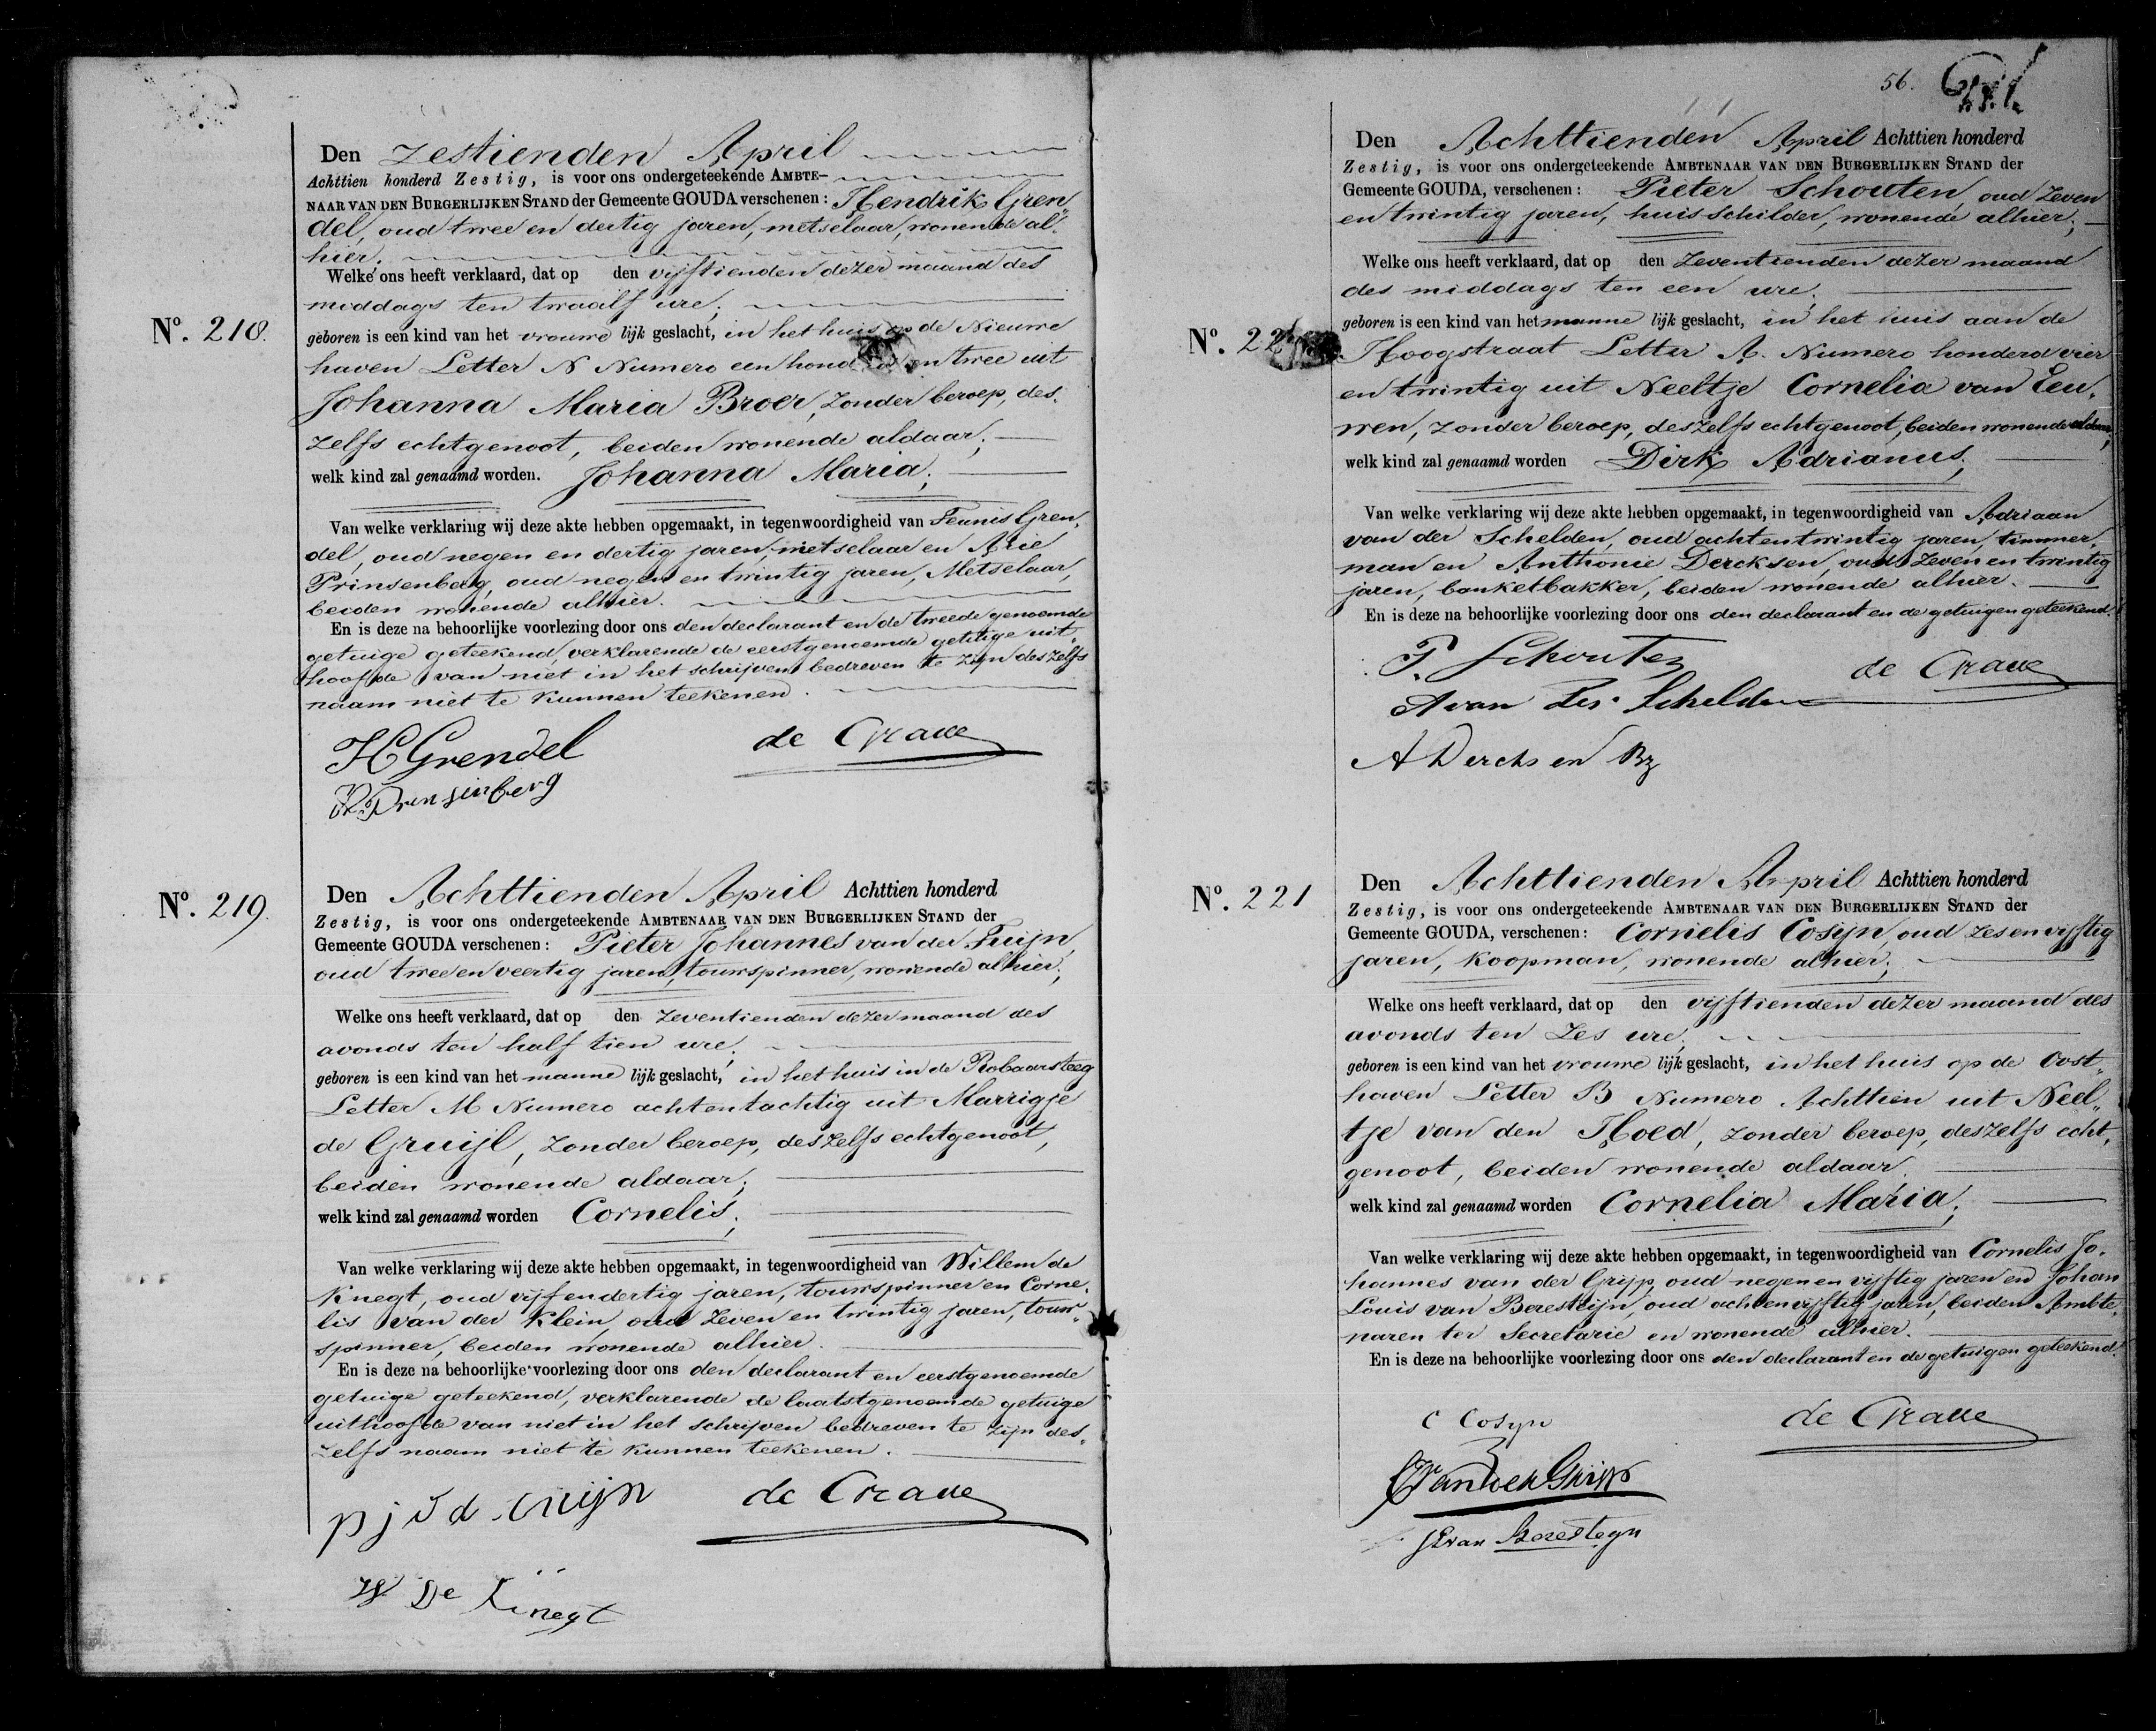 Nº. 218.
Den Zestienden April
Achttien honderd Zestig, is voor ons ondergeteekende AMBTE-
NAAR VAN DEN BURGERLIJKEN STAND der Gemeente GOUDA verschenen: Hendrik Gren„
del, oud twee en dertig jaren, metselaar, wonende al„
hier.
Welke ons heeft verklaard, dat op den vijftienden dezer maand des
middags ten twaalf ure;
geboren is een kind van het vrouwelijk geslacht, in het huis op de Nieuwe
haven Letter N Numero een honderd en twee uit
Johanna Maria Broer, zonder beroep, des„
zelfs echtgenoot, beiden wonende aldaar;
welk kind zal genaamd worden. Johanna Maria;
Van welke verklaring wij deze akte hebben opgemaakt, in tegenwoordigheid van Teunis Gren„
del, oud negen en dertig jaren, metselaar en Arie
Prinsenberg, oud negen en twintig jaren, Metselaar,
beiden wonende alhier.
En is deze na behoorlijke voorlezing door ons den declarant en de tweede genoemde
getuige geteekend, verklarende de eerstgenoemde getuige uit„
hoofde van niet in het schrijven bedreven te zijn deszelfs
naam niet te kunnen teekenen.
H Grendel de Graue
Prinsinberg
Nº. 219.
Den Achttienden April Achttien honderd
Zestig, is voor ons ondergeteekende AMBTENAAR VAN DEN BURGERLIJKEN STAND der
Gemeente GOUDA verschenen: Pieter Johannes van der Tuijn,
oud twee en veertig jaren, touwspinner, wonende alhier;
Welke ons heeft verklaard, dat op den zeventienden dezer maand des
avonds ten half tien ure;
geboren is een kind van het mannelijk geslacht, in het huis in de Robaarsteeg
Letter M Numero achtentachtig uit Marrigje
de Gruijl, zonder beroep, deszelfs echtgenoot,
beiden wonende aldaar;
welk kind zal genaamd worden Cornelis;
Van welke verklaring wij deze akte hebben opgemaakt, in tegenwoordigheid van Willem de
Knegt, oud vijf en dertig jaren, touwspinner en Corne„
lis van der Klein, oud zeven en twintig jaren, touw„
spinner, beiden wonende alhier.
En is deze na behoorlijke voorlezing door ons den declarant en eerstgenoemde
getuige geteekend, verklarende de laatstgenoemde getuige
uithoofde van niet in het schrijven bedreven te zijn des„
zelfs naam niet te kunnen teekenen.
p j v d tuijn de Graue
W De Knegt
56.
Nº. 22
Den Achttienden April Achttien honderd
Zestig, is voor ons ondergeteekende AMBTENAAR VAN DEN BURGERLIJKEN STAND der
Gemeente GOUDA, verschenen: Pieter Schouten, oud zeven
en twintig jaren, huis-schilder, wonende alhier;
Welke ons heeft verklaard, dat op den zeventienden dezer maand
des middags ten een ure;
geboren is een kind van het mannelijk geslacht, in het huis aan de
Hoogstraat Letter A. Numero honderd vier
en twintig uit Neeltje Cornelia van Eeu„
wen, zonder beroep, deszelfs echtgenoot, beiden wonende aldaar;
welk kind zal genaamd worden Dirk Adrianus;
Van welke verklaring wij deze akte hebben opgemaakt, in tegenwoordigheid van Adriaan
van der Schelden, oud achtentwintig jaren, timmer„
man en Anthonie Dercksen, oud zeven en twintig
jaren, banketbakker, beiden wonende alhier.
En is deze na behoorlijke voorlezing door ons den declarant en de getuigen geteekend.
P. Schouten de Graue
A van der Schelden
A Dercksen Bz
Nº. 221
Den Achttienden April Achttien honderd
Zestig, is voor ons ondergeteekende AMBTENAAR VAN DEN BURGERLIJKEN STAND der
Gemeente GOUDA, verschenen: Cornelis Cosijn, oud zesenvijftig
jaren, koopman, wonende alhier;
Welke ons heeft verklaard, dat op den vijftienden dezer maand des
avonds ten zes ure;
geboren is een kind van het vrouwelijk geslacht, in het huis op de Oost„
haven Letter B Numero Achttien uit Neel„
tje van den Hoed, zonder beroep, deszelfs echt„
genoot, beiden wonende aldaar.
welk kind zal genaamd worden Cornelia Maria;
Van welke verklaring wij deze akte hebben opgemaakt, in tegenwoordigheid van Cornelis Jo„
hannes van der Grijp, oud negen en vijftig jaren en Johan
Louis van Beresteijn, oud achtenvijftig jaren, beiden Ambte„
naren ter Secretarie en wonende alhier.
En is deze na behoorlijke voorlezing door ons den declarant en de getuigen geteekend.
C Cosyn de Graue
van der Grijp
JL van Beresteyn